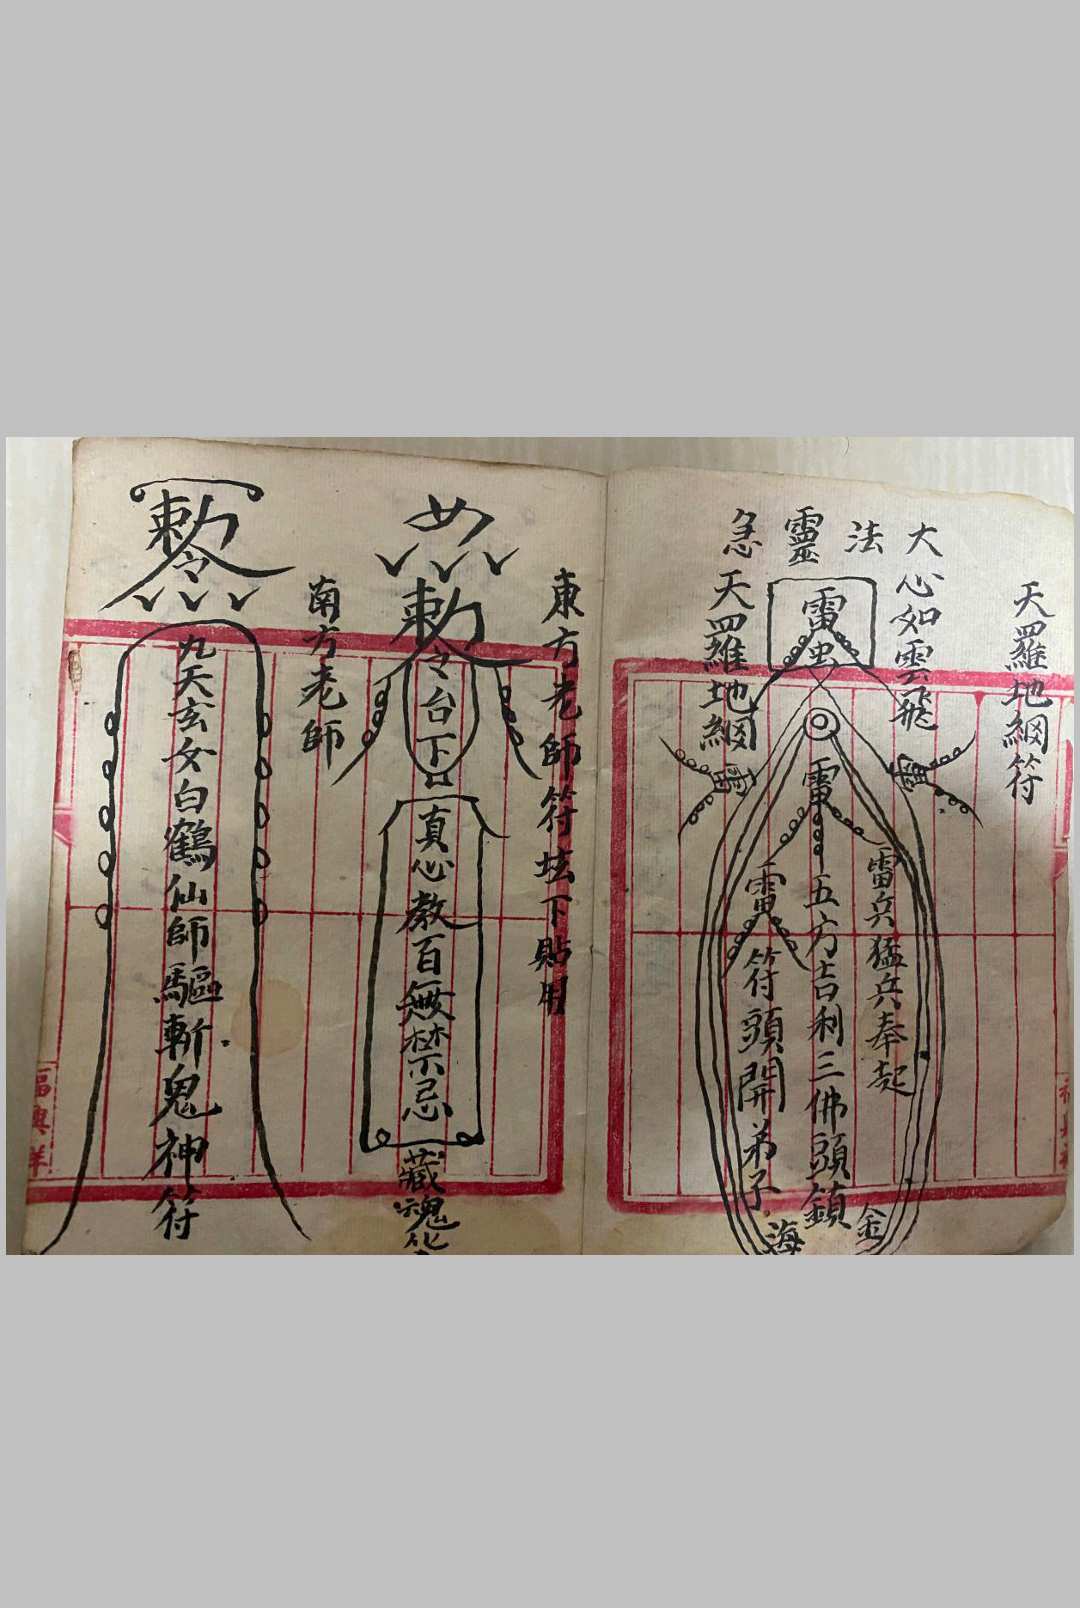 天羅地網符
大法靈急
心如雲飛
天羅地網
雷
雷
雷
雷
雷兵猛兵奉起
五方吉利三佛頭鎖
雷
符頭開弟子
金
海
東方老師符坛下貼用
勅令
台下
真心教百無禁忌
藏魂
南方老師
勅令
九天玄女白鶴仙師驅斬鬼神符
福興祥